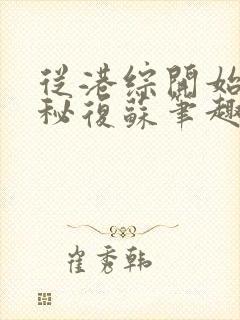 從港綜開始
秘復蘇筆趣
崔秀韩